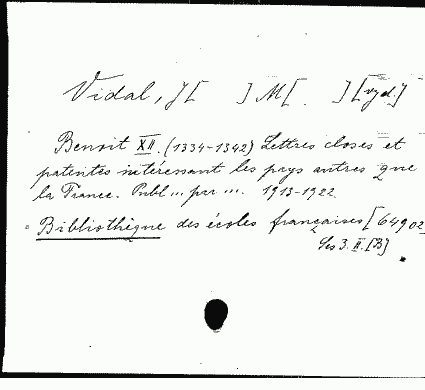 Vidal, J[ ] M[ ] [vyd.]
Benoit XII. (1334-1342) Lettres closes et
patentes intéressant les pays autres que
la France. Publ... par ... 1913-1922.
Bibliothèque des écoles françaises [64902
Ses 3. II. [B]